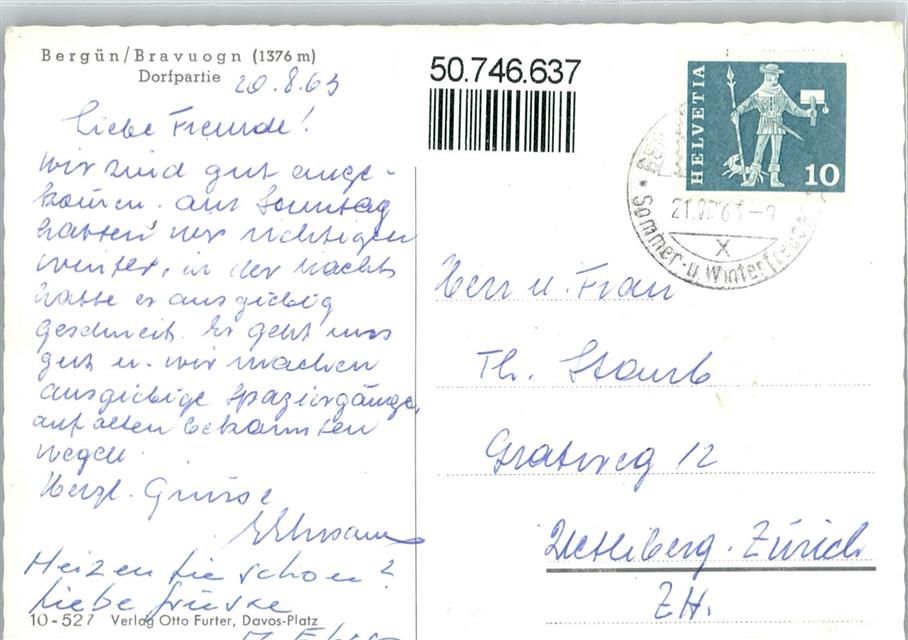 Bergün/Bravuogn (1376 m)
Dorfpartie
20.8.63
Liebe Freunde!
wir sind gut ange-
komen. am Sonntag
hatten wir richtigen
winter, in der Nacht
hatte es ausgiebig
geschneit. Es geht uns
gut u. wir machen
ausgiebige Spaziergänge,
auf alten bekannten
wegen.
Herzl. Grüsse
Heizen Sie schon?
Liebe Grüsse
10-527 Verlag Otto Furter, Davos-Platz
50.746.637
HELVETIA
10
Sommer- u. Winter
Herr u. Frau
Th. Staub
Gratweg 12
Uetliberg. Zürich
ZH.